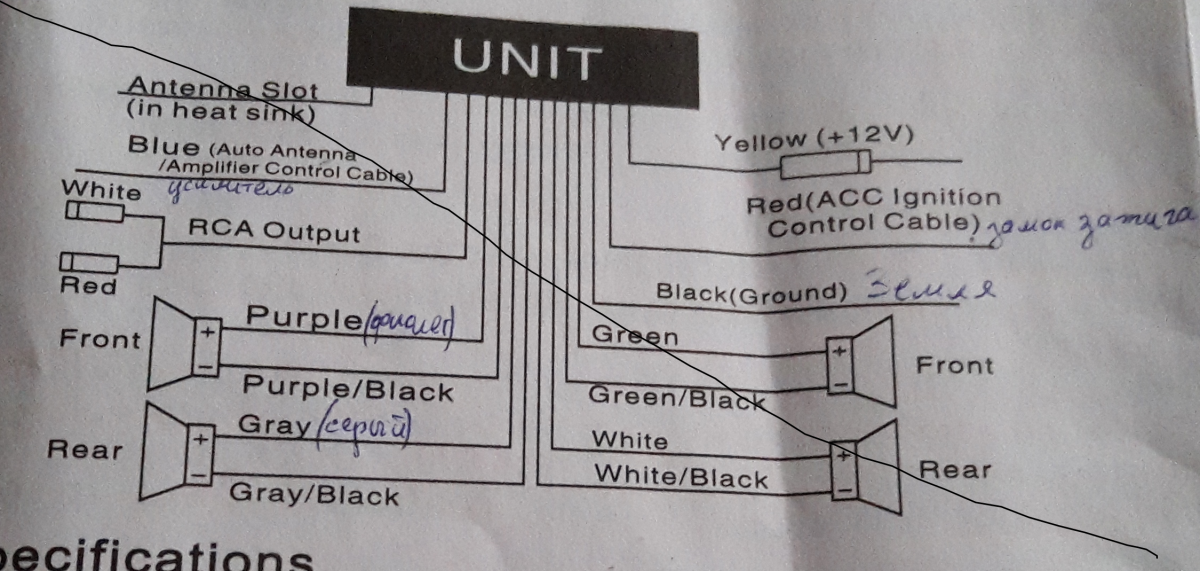 UNIT
Antenna Slot
(in heat sink)
Blue (Auto Antenna
/Amplifier Control Cable)
усилитель
White
RCA Output
Red
Front
+
−
Purple (фиолет)
Purple/Black
Rear
+
−
Gray (серый)
Gray/Black
Yellow (+12V)
Red(ACC Ignition
Control Cable) замок зажига
Black(Ground) Земля
Green
Green/Black
+
−
Front
White
White/Black
+
−
Rear
pecifications